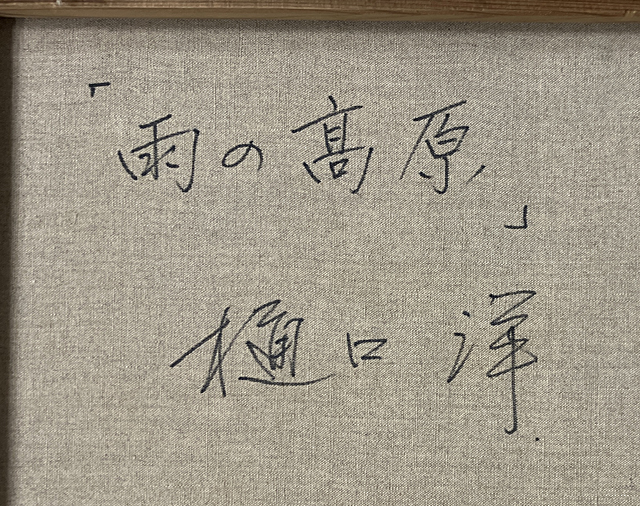 「雨の髙原」
樋口 洋